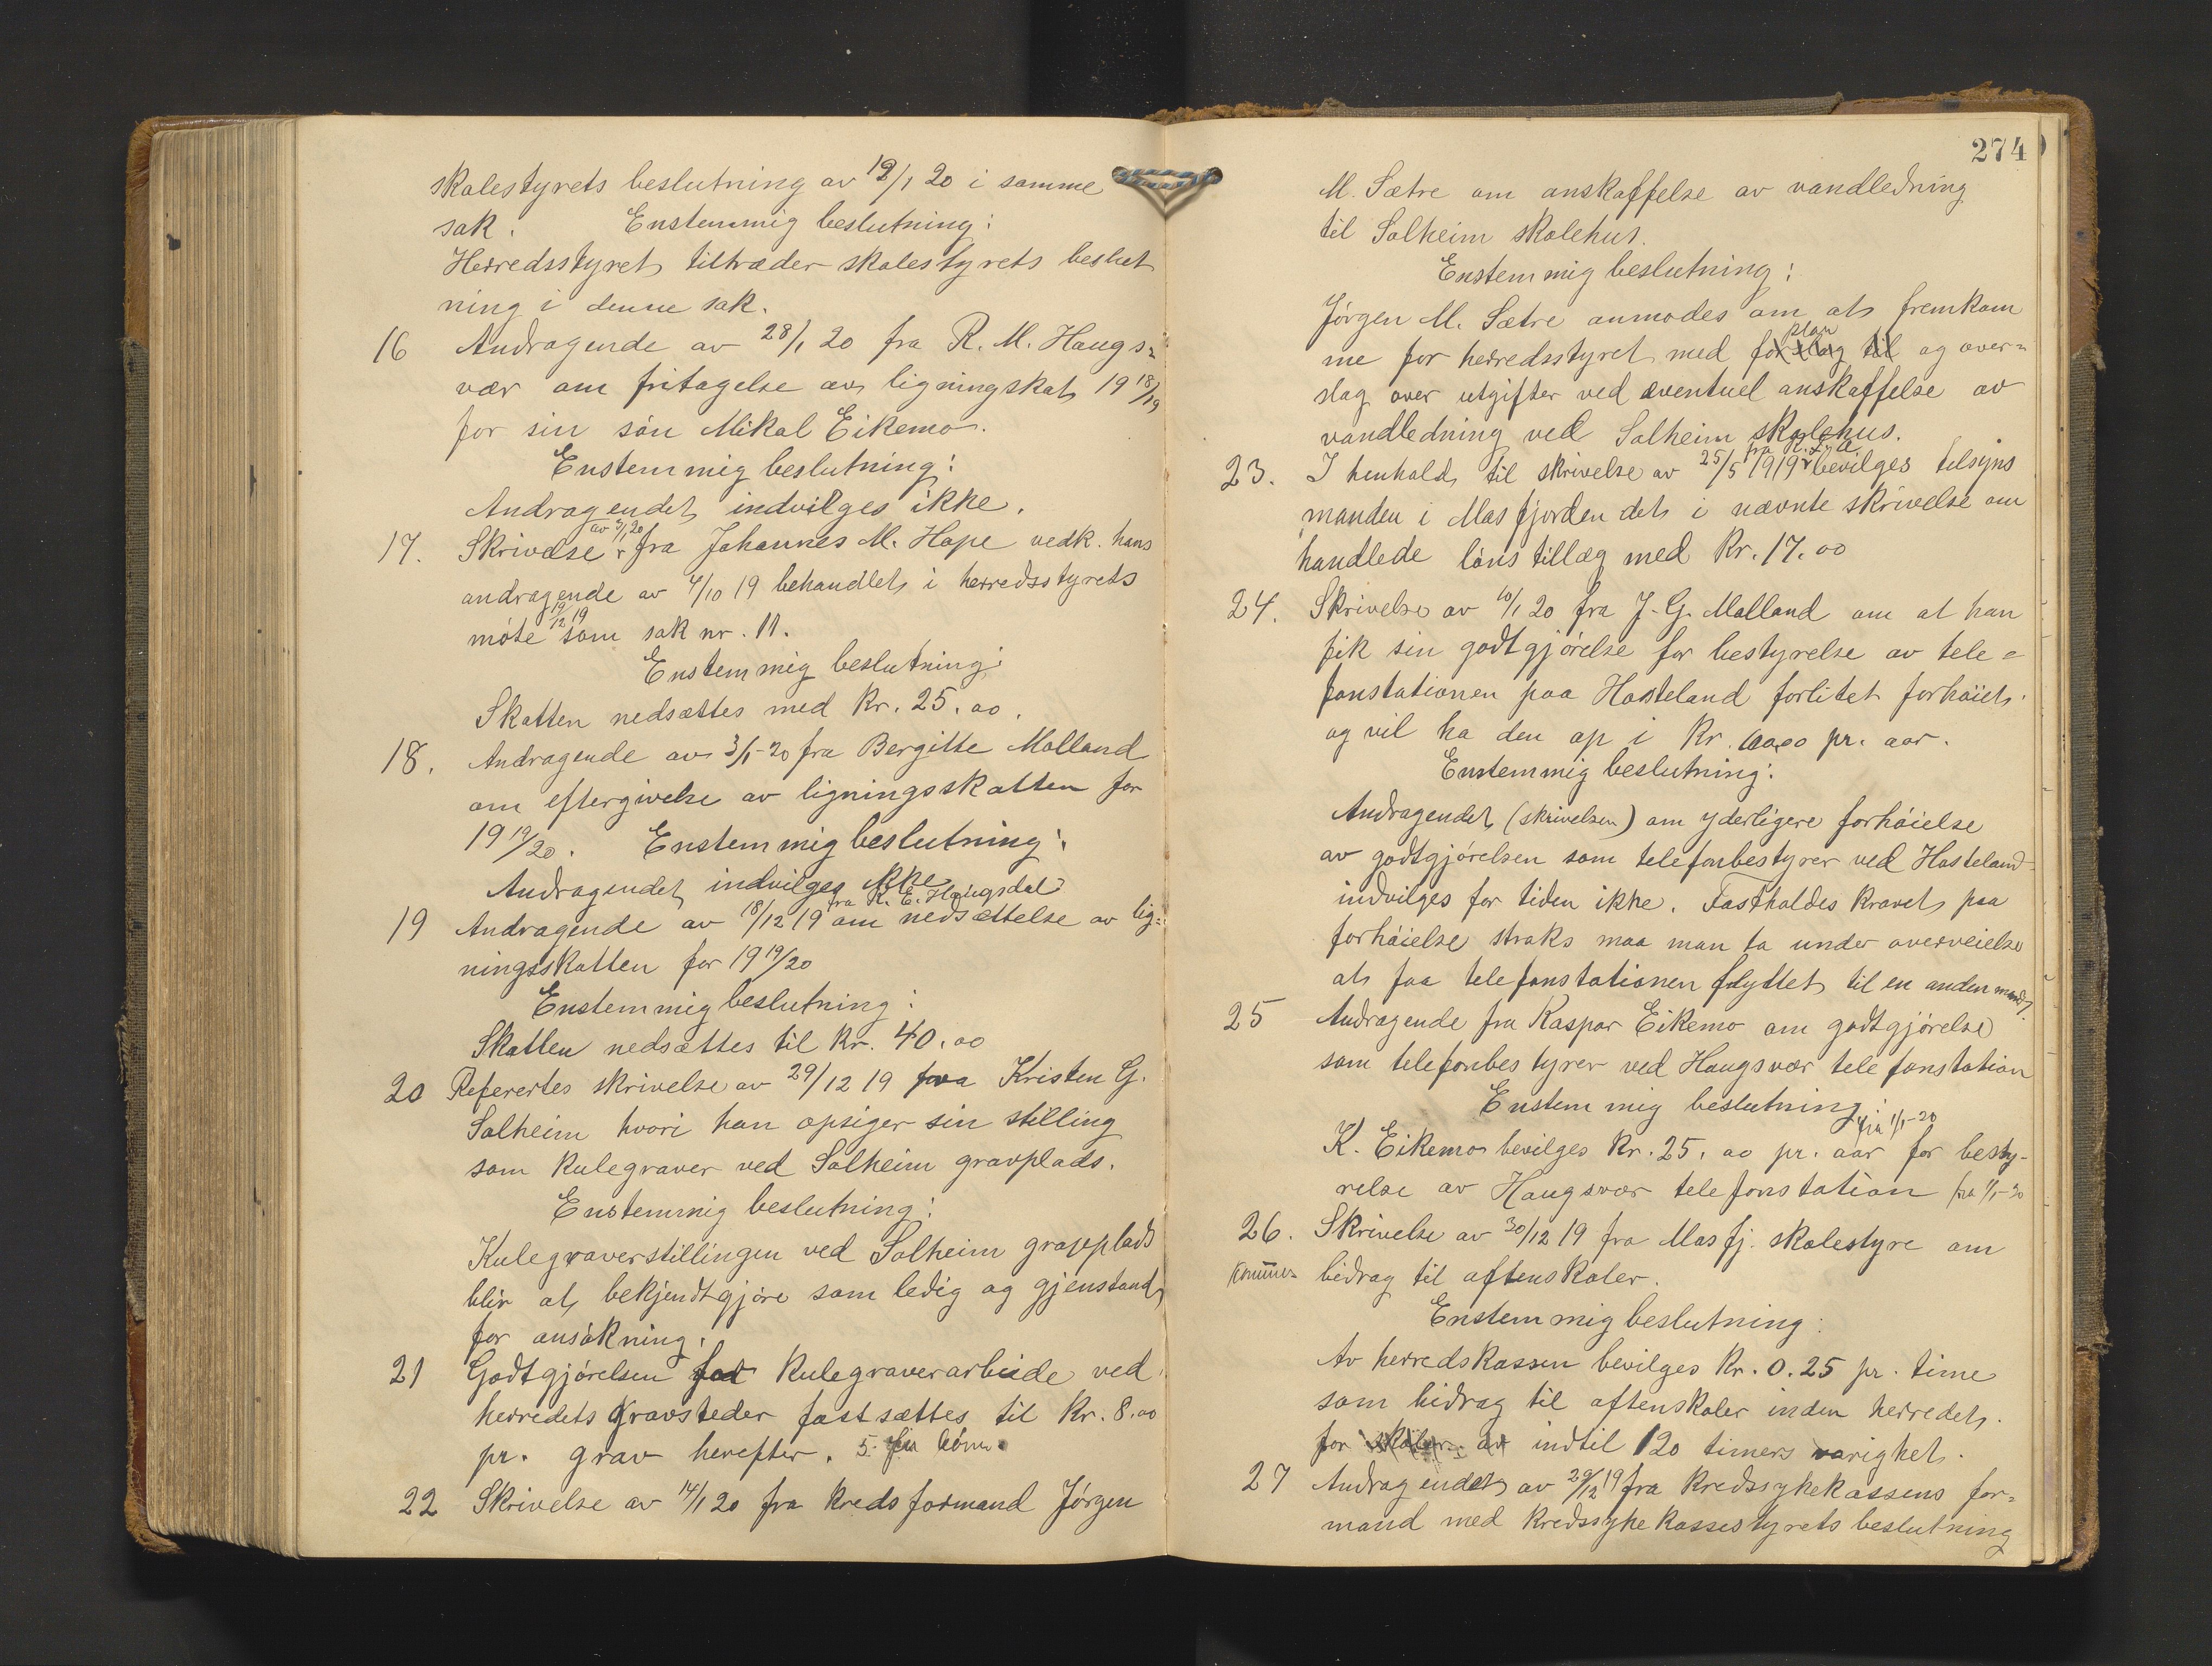 skolestyrets beslutning av 12/1 20 i samme
sak. Enstemmig beslutning:
Herredsstyret tiltræder skolestyrets beslut
ning i denne sak.
16 Andragende av 28/1 20 fra R. M. Haugs=
vær om fritagelse av ligningskat 19 18/19
for sin sön Mikal Eikemo.
Enstemmig beslutning:
Andragendet indvilges ikke.
17. Skrivelse av 3/1 20 fra Johannes M. Hope vedk. hans
andragende av 4/10 19 behandlet i herredsstyrets
möte 19/12 19 som sak nr. 11.
Enstemmig beslutning:
Skatten nedsættes med Kr. 25.00.
18. Andragende av 3/1-20 fra Bergitte Molland
om eftergivelse av ligningsskatten for
19 19/20. Enstemmig beslutning:
Andragendet indvilges ikke
19 Andragende av 18/12 19 fra R. E. Haugsdal om nedsættelse av lig=
ningsskatten for 19 19/20
Enstemmig beslutning:
Skatten nedsættes til Kr. 40.00
20 Referertes skrivelse av 29/12 19 fra Kristen G.
Solheim hvori han opsiger sin stilling
som kulegraver ved Solheim gravplads.
Enstemmig beslutning:
Kulegraverstillingen ved Solheim gravplads
blir at bekjendtgjöre som ledig og gjenstand
for ansökning.
21 Godtgjörelsen for kulegraverarbeide ved
herredets gravsteder fastsættes til Kr. 8.00
pr. grav herefter. 5.
22 Skrivelse av 14/1 20 fra kredsformand Jörgen
274
M. Sætre om anskaffelse av vandledning
til Solheim skolehus.
Enstemmig beslutning:
Jörgen M. Sætre anmodes om at fremkom
me for herredsstyret med forslag til plan og over=
slag over utgifter ved eventuel anskaffelse av
vandledning ved Solheim skolehus.
23. I henhold til skrivelse av 25/5 1919 bevilges tilsyns
manden i Masfjorden det i nævnte skrivelse om
handlede lönstillæg med Kr. 17.00
24. Skrivelse av 10/1 20 fra J. G. Molland om at han
fik sin godtgjörelse for bestyrelse av tele=
fonstationen paa Hosteland forlitet forhöiet.
og vil ha den op i Kr. 100,00 pr. aar.
Enstemmig beslutning:
Andragendet (skrivelsen) om yderligere forhöielse
av godtgjörelsen som telefonbestyrer ved Hosteland
indvilges for tiden ikke. Fastholdes kravet paa
forhöielse straks maa man ta under overveielse
at faa telefonstationen flyttet til en anden mand.
25 Andragende fra Kaspar Eikemo om godtgjörelse
som telefonbestyrer ved Haugsvær telefonstation
Enstemmig beslutning:
K. Eikemo bevilges Kr. 25.00 pr. aar fra 1/1-20 for besty-
relse av Haugsvær telefonstation fra 1/1-20
26. Skrivelse av 30/12 19 fra Masfj. skolestyre om
kommune- bidrag til aftenskoler.
Enstemmig beslutning:
Av herredskassen bevilges Kr. 0.25 pr. time
som bidrag til aftenskoler inden herredet.
for skoler av indtil 120 timers varighet.
27 Andragendet av 29/12 19 fra kredssykekassens for=
mand med kredssykekassestyrets beslutning